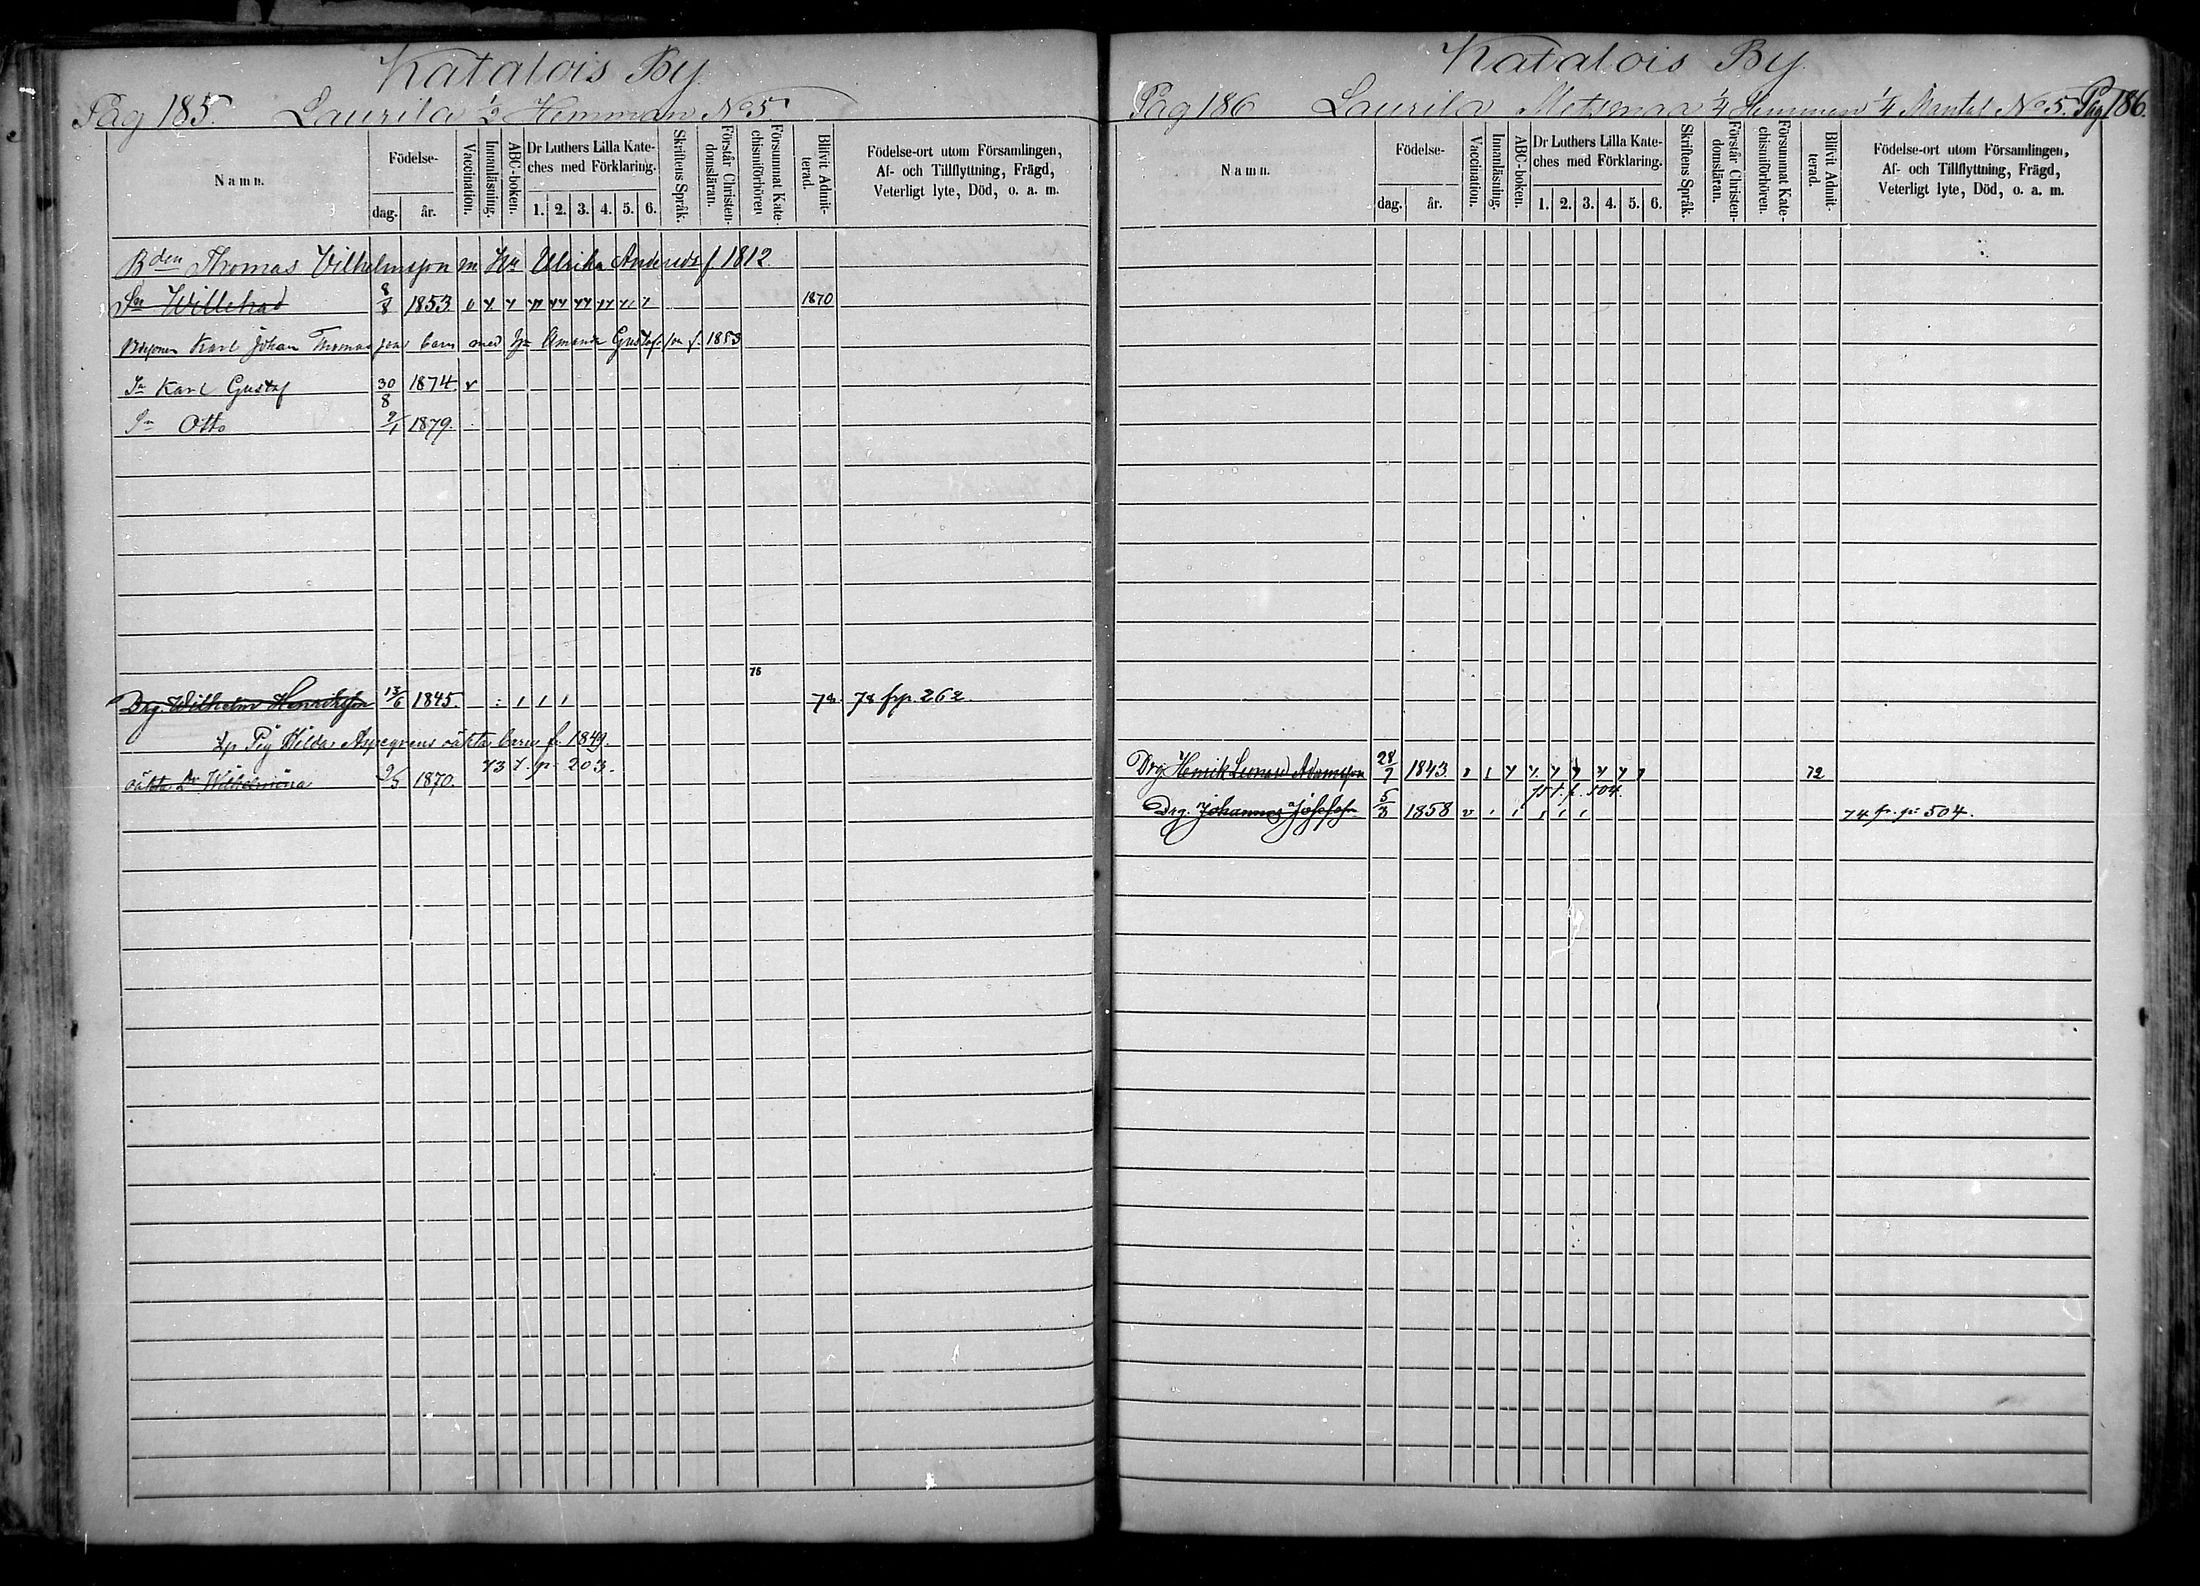 Katalois By
Pag 185. Laurila 1/2 Hemman No 5
Namn. Födelse- dag. år. Vaccination. Innanläsning. ABC-boken. Dr Luthers Lilla Kateches med Förklaring. 1. 2. 3. 4. 5. 6. Skriftens Språk. Förstår Christendomsläran. Försummat Katechismiförhören. Blifvit Admitterad. Födelse-ort utom Församlingen, Af- och Tillflyttning, Frägd, Veterligt lyte, Död, o. a. m.
Bden Thomas Vilhelmsson m Hu Ulrika Andersdr f. 1812
Sn Willehad 1853 1870
Karl Johan Thomassons barn med Amanda f. 1853
Sn Karl Gustaf 30/8 1874. v
Sn Otto 1879.
78
Drg. Wilhelm Henriksson 13/6 1845. 78 78 frp. 262.
Pig Hilda Aspegrens oäkta barn f. 1849.
73 t. p. 203.
oäkta Dr Wilhelmina 1870.
Katalois By
Pag 186 Laurila Metsmaa 1/4 Hemman 1/4 Mantal No 5. Pag 186.
Namn. Födelse- dag. år. Vaccination. Innanläsning. ABC-boken. Dr Luthers Lilla Kateches med Förklaring. 1. 2. 3. 4. 5. 6. Skriftens Språk. Förstår Christendomsläran. Försummat Katechismiförhören. Blifvit Admitterad. Födelse-ort utom Församlingen, Af- och Tillflyttning, Frägd, Veterligt lyte, Död, o. a. m.
Drg Henrik Leonard Adamsson 28/7 1843. 72
75 t. p. 504.
Drg. Johannes Josefsn 5/3 1858 v 74 fr. p. 504.